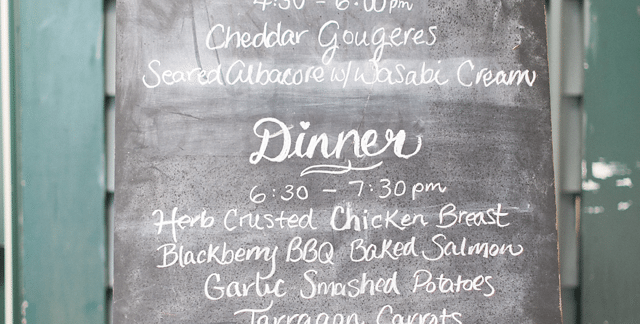 4:30 - 6:00pm
Cheddar Gougeres
Seared Albacore w/ Wasabi Cream
Dinner
6:30 - 7:30pm
Herb Crusted Chicken Breast
Blackberry BBQ Baked Salmon
Garlic Smashed Potatoes
Tarragon Carrots